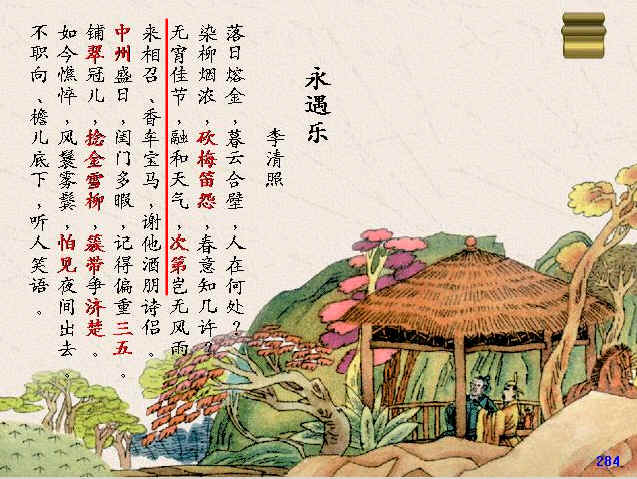 永遇乐
李清照
落日熔金，暮云合壁，人在何处？
染柳烟浓，砍梅笛怨，春意知几许？
无宵佳节，融和天气，次第岂无风雨
来相召、香车宝马，谢他酒朋诗侣。
中州盛日，闺门多暇，记得偏重三五。
铺翠冠儿，捻金雪柳，簇带争济楚。
如今憔悴，风鬟雾鬓，怕见夜间出去。
不职向、檐儿底下，听人笑语。
284